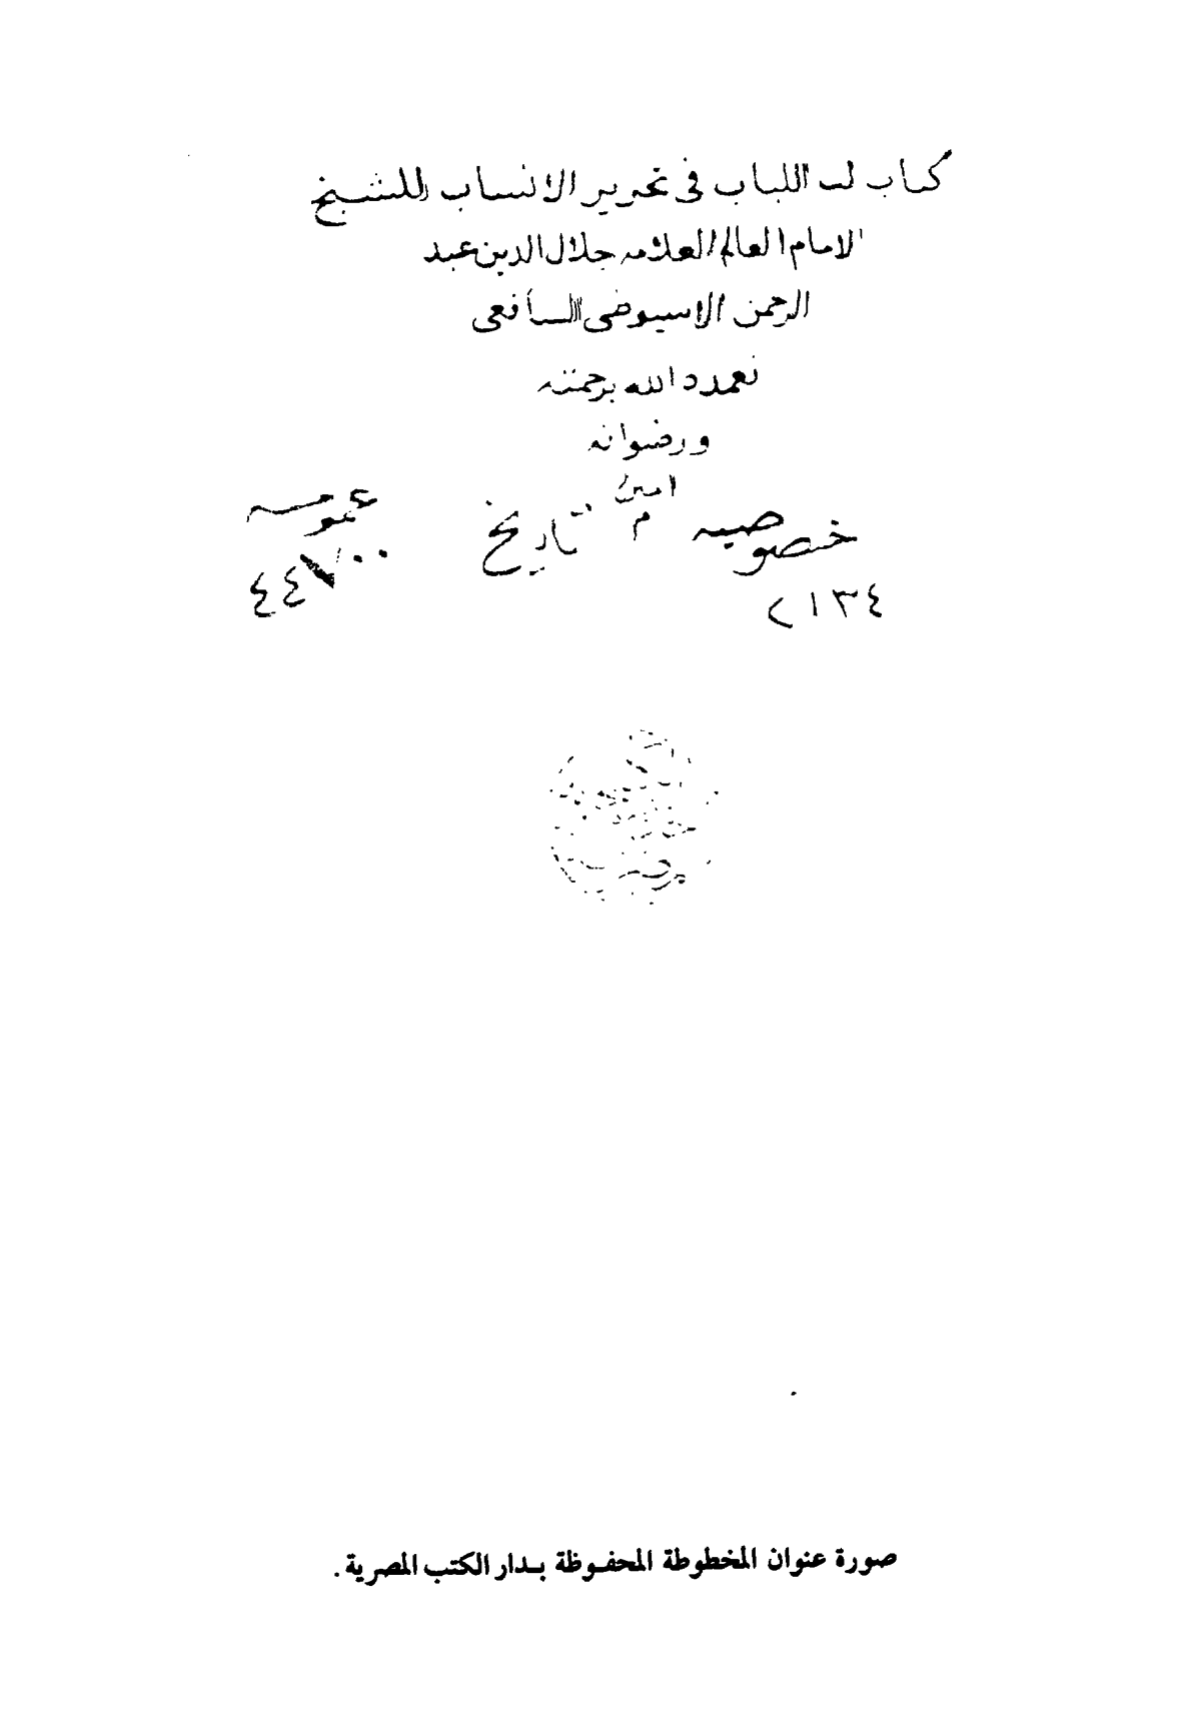 كتاب لب اللباب في تحرير الانساب للشيخ
الامام العالم العلامه جلال الدين عبد
الرحمن الاسيوضى الشافعى
تغمده الله برحمته
ورضوانه
امين
م
خصوصيه تاريخ عموميه
٢١٣٤
صورة عنوان المخطوطة المحفوظة بدار الكتب المصرية .